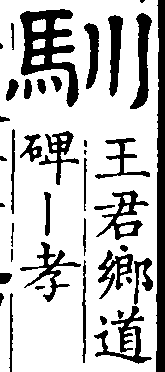 馴
王君鄉道
碑｜孝